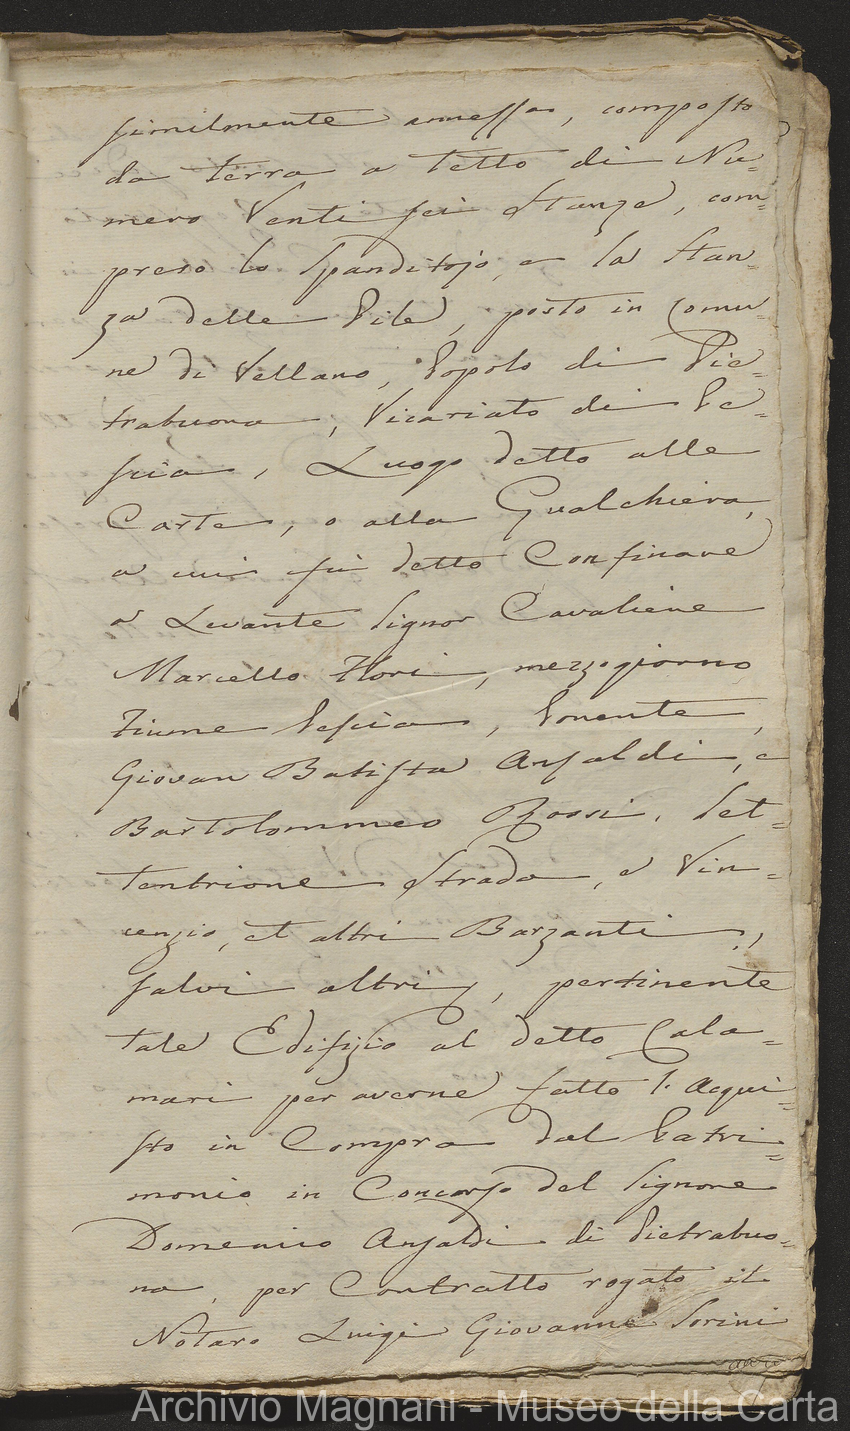 similmente annesso, composto
da terra a Tetto di Nu=
mero Venti sei Stanze, com=
preso lo Spanditojo, e la Stan=
za delle Pile, posto in Comu=
ne di Vellano, Popolo di Pie=
trabuona, Vicariato di Pe=
scia, Luogo detto alle
Carte, o alla Gualchiera,
a cui fu detto Confinare
a Levante Signor Cavaliere
Marcello Flori, mezzogiorno
Fiume Pescia, Ponente,
Giovan Batista Ansaldi, e
Bartolommeo Rossi, Set=
tentrione Strada, e Vin=
cenzio, et altri Barzanti,
salvi altri, pertinente
tale Edifizio al detto Cala=
mari per averne fatto l'Acqui=
sto in Compra dal Patri=
monio in Concorso del Signore
Domenico Ansaldi di Pietrabuo=
na, per Contratto rogato il
Notaro Luigi Giovanni Sorini
Archivio Magnani - Museo della Carta